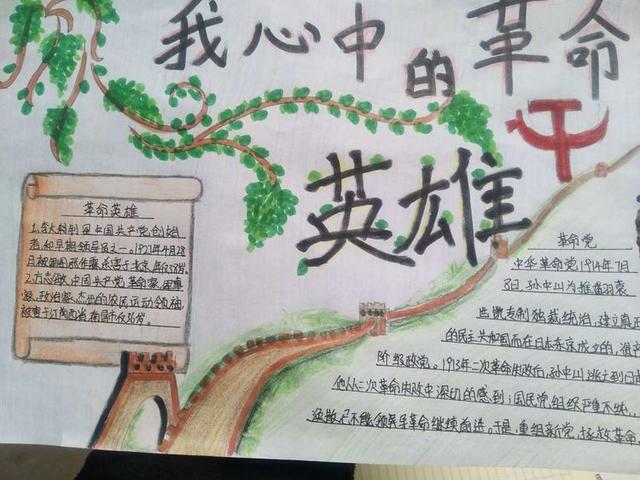 我心中的革命
英雄
革命英雄
1.李大钊则是中国共产党创始
者,和早期领导民主一。1927年4月28
日被军阀张作霖杀害于北京,年仅38岁。
2.方志敏,中国共产党革命家,军事
家,政治家,杰出的农民运动领袖
被害于江西省南昌市仅36岁。
革命党
中华革命党1914年7月
8日,孙中山为推翻袁
世凯专制独裁统治,建立真正
的民主共和国而在日本东京成立的
阶级政党。1913年二次革命失败后,孙中山逃亡到日
他从二次革命失败中深切的感到:国民党组织严重不纯,
涣散,已不能领导革命继续前进。于是,重组新党,拯救革命